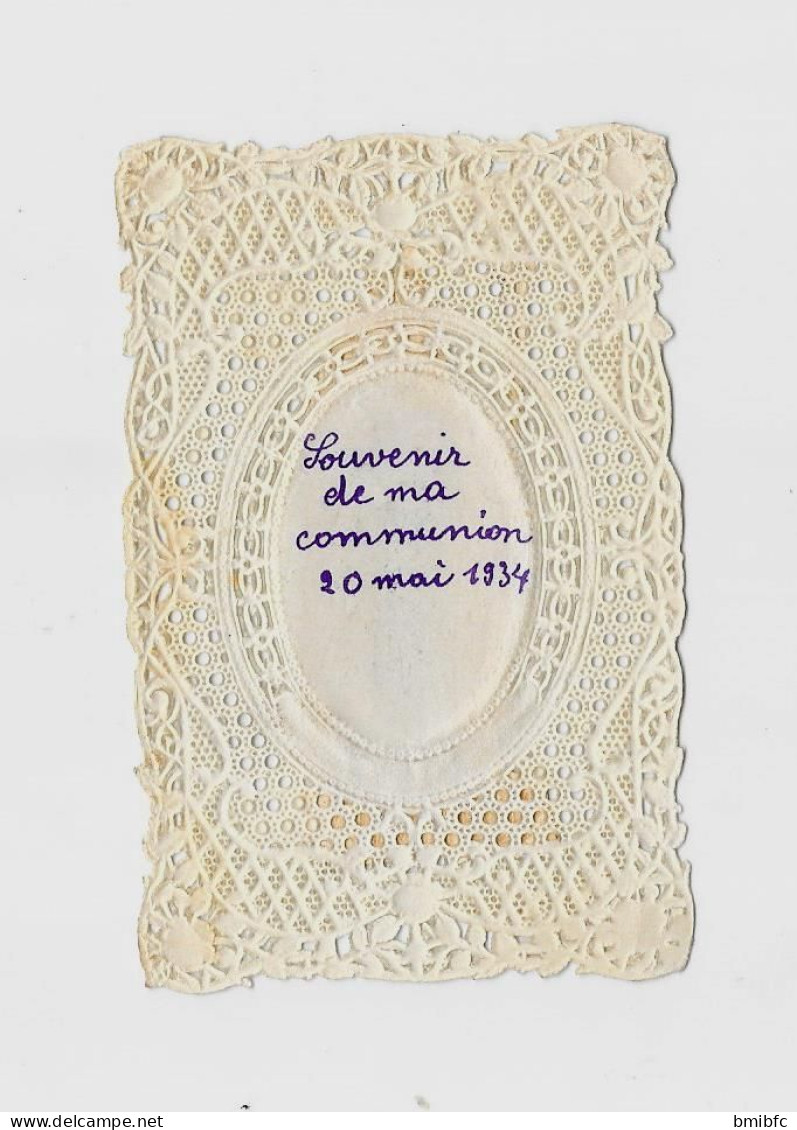 Souvenir
de ma
communion
20 mai 1934
delcampe.net
bmibfc